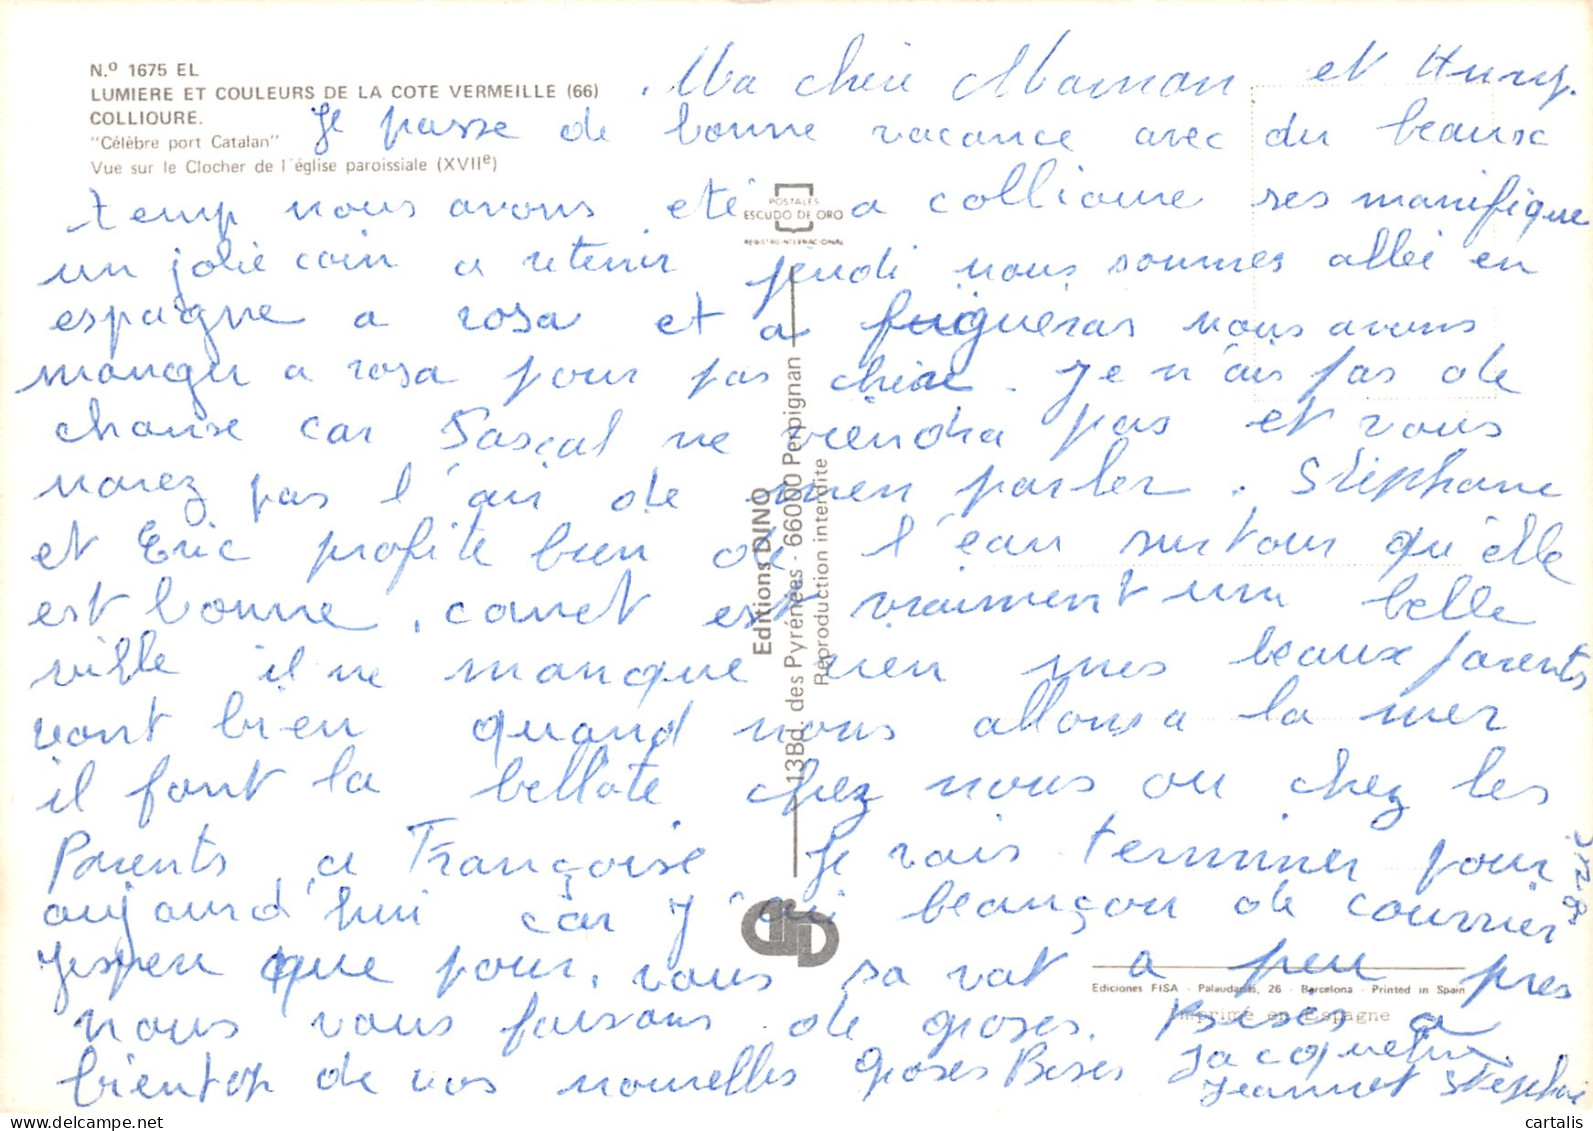 N.º 1675 EL
LUMIERE ET COULEURS DE LA COTE VERMEILLE (66)
COLLIOURE.
"Célèbre port Catalan"
Vue sur le Clocher de l'église paroissiale (XVIIe)
POSTALES
ESCUDO DE ORO
REGISTRO INTERNACIONAL
Editions DINO
13Bd. des Pyrénées - 66000 Perpignan
Reproduction interdite
Ediciones FISA - Palaudarias, 26 - Barcelona - Printed in Spain
Imprimé en Espagne
Ma chère Maman et
Je passe de bonne vacance avec du beaux
temp nous avons eté a collioure ses manifique
un jolie coin a retenir jeudi nous sommes allée en
espagne a rosa et a fuigueras nous avons
manger a rosa pour pas chère. Je n'ais pas de
chanse car Pascal ne viendra pas et vous
navez pas l'air de men parler. Stéphane
et Eric profite bien de l'eau surtour qu'elle
est bonne, canet est vraiment une belle
ville il ne manque rien mes beaux parents
vont bien quand nous allons a la mer
il font la bellote chez nous ou chez les
Parents a Françoise Je vais terminer pour
aujourd'hui car J'ai beançon de courrier
Jesper que pour, vous sa vat a peu pres
nous vous faisons de groses Bises a
bientop de vos nouvelles groses Bises Jacqueline
Jeannot Stephane
cartalis